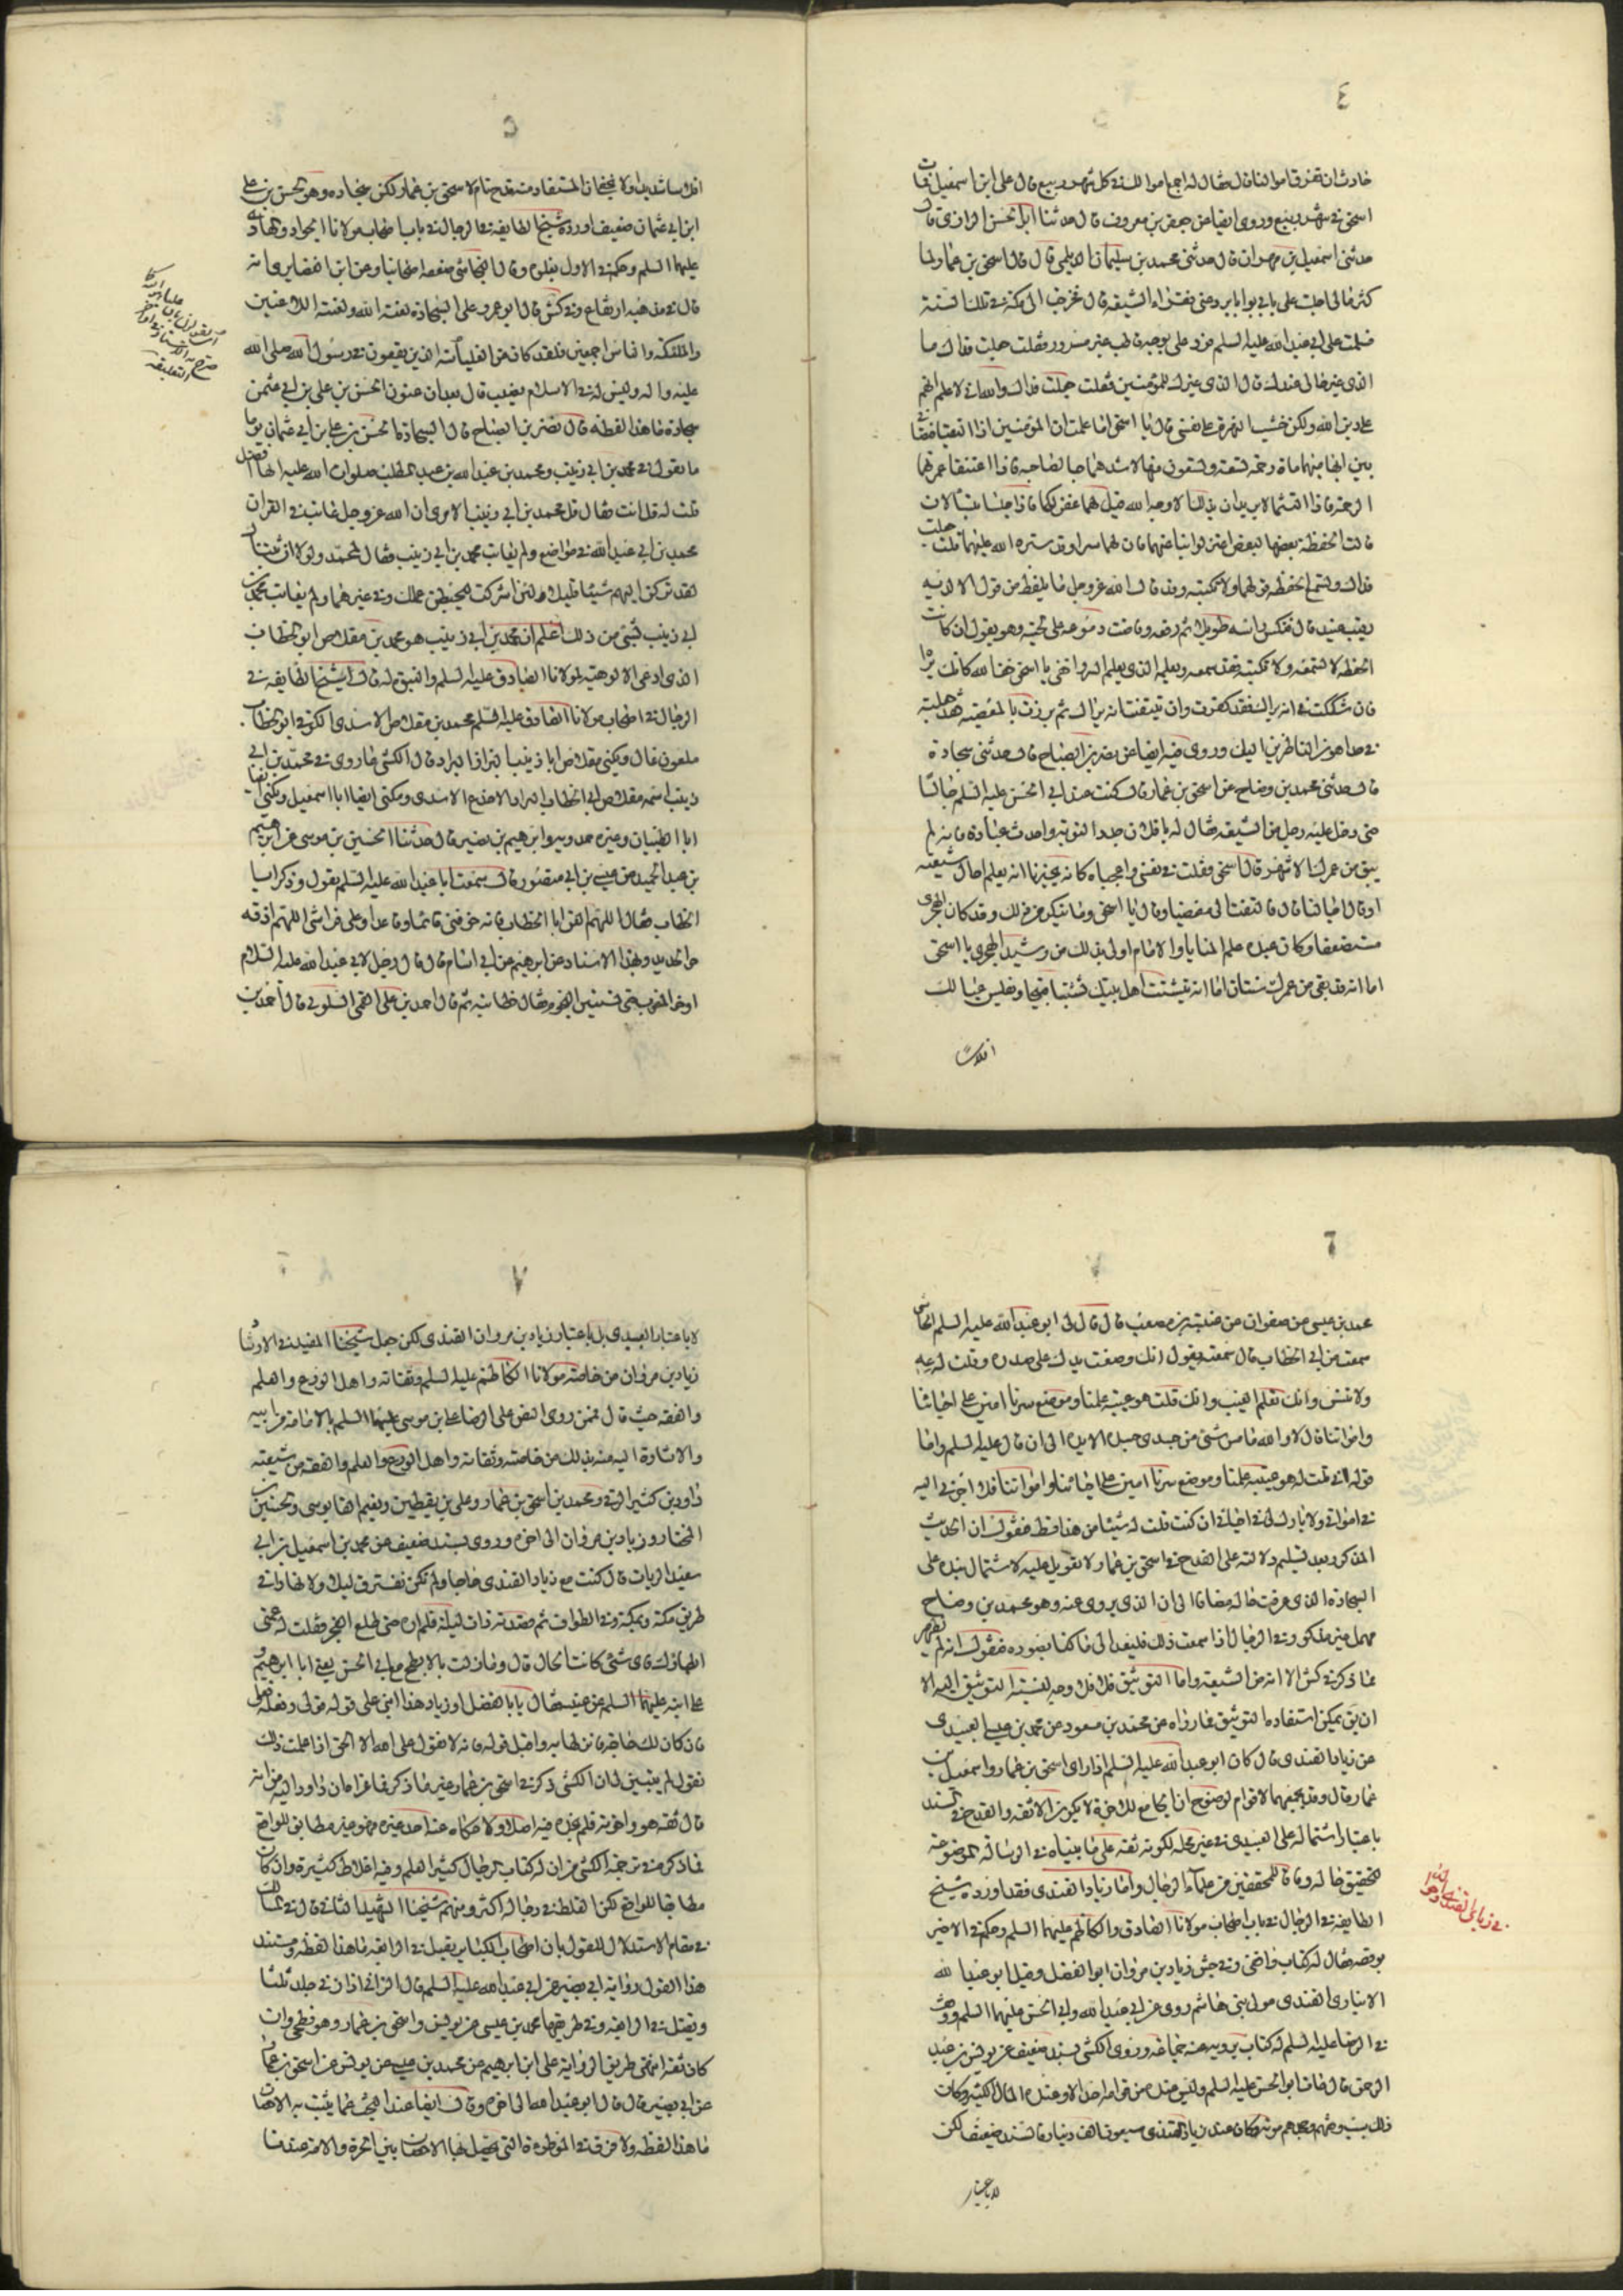 ٤
حادث ان تفرقاموالنا قال فقال له اجمع اموالك في كل شهر ربيع قال علي ابن اسمعيل فمات
اسحق في شهر ربيع وروى ايضا عن جعفر بن معروف قال حدثنا ابو الحسن الرازي قال
حدثني اسمعيل بن مهران قال حدثني محمد بن سليمان الديلمي قال قال اسحق بن عمار لما
كثر مالي اجلست على بابي بوابا يرد عني فقراء الشيعة قال فخرجت الى مكة في تلك السنة
فسلمت على ابي عبد الله عليه السلم فرد علي بوجه قاطب غير مسرور فقلت جعلت فداك ما
الذي غير حالي عندك قال الذي غيرك للمؤمنين فقلت جعلت فداك والله اني لاعلم انهم
على دين الله ولكن خشيت الشهرة على نفسي قال يا اسحق اما علمت ان المؤمنين اذا التقيا فتصافحا
بين ابهاميهما مائة رحمة تسعة وتسعون منها لاشدهما حبا لصاحبه فاذا اعتنقا غمرتهما
الرحمة فاذا التثما لا يريدان بذلك الا وجه الله قيل لهما غفر لكما فاذا جلسا يتسائلان
قالت الحفظة بعضها لبعض اعتزلوا بنا عنهما فان لهما سرا وقد ستره الله عليهما قلت جعلت
فداك وتسمع الحفظة قولهما ولا تكتبه وقد قال الله عز وجل ما يلفظ من قول الا لديه
رقيب عتيد قال فنكس راسه طويلا ثم رفعه وفاضت دموعه على لحيته وهو يقول ان كانت
الحفظة لا تسمعه ولا تكتبه فقد سمعه وعلمه الذي يعلم السر واخفى يا اسحق خف الله كانك تراه
فان شككت في انه يراك فقد كفرت وان تيقنت انه يراك ثم برزت بالمعصية فقد جعلته
في حد اهون الناظرين اليك وروى فيه ايضا عن نصر بن الصباح قال حدثني سجادة
قال حدثني محمد بن وضاح عن اسحق بن عمار قال كنت عند ابي الحسن عليه السلم جالسا
حتى دخل عليه رجل من الشيعة فقال له يا فلان جدد التوبة واحدث عبادة فانه لم
يبق من عمرك الا شهر قال اسحق فقلت في نفسي واعجباه كانه يخبرنا انه يعلم اجال شيعته
او قال اجالنا قال فالتفت الي مغضبا وقال يا اسحق وما تنكر من ذلك وقد كان الهجري
مستضعفا وكان عنده علم المنايا والامام اولى بذلك من رشيد الهجري يا اسحق
اما انه قد بقي من عمرك سنتان اما انه يتشتت اهل بيتك تشتتا قبيحا ويفلس عيالك
افلاسا
٥
افلاسا شديدا ولا يخفى ان المستفاد منه قدح تام لاسحق بن عمار لكن سجادة وهو الحسن بن علي
ابن ابي عثمان ضعيف اورده شيخ الطايفة في الرجال في باب اصحاب مولانا الجواد والهادي
عليهما السلم وحكم في الاول بغلوه وقال النجاشي ضعفه اصحابنا وعن ابن الغضايري انه
قال في مذهبه ارتفاع وفي كش قال ابو عمرو على السجادة لعنة الله ولعنة اللاعنين
والملئكة والناس اجمعين فلقد كان من العليائية الذين يقعون في رسول الله صلى الله
عليه واله وليس له في الاسلام نصيب قال بعد ان عنون الحسن بن علي بن ابي عثمن
سجادة ما هذا لفظه قال نصر بن الصباح قال السجادة الحسن بن علي بن ابي عثمان يوما
ما تقول في محمد بن ابي زينب ومحمد بن عبد الله بن عبد المطلب صلوات الله عليه ايهما افضل
قلت له قل انت فقال قل محمد بن ابي زينب الا ترى ان الله عز وجل عاتب في القران
محمد بن عبد الله في مواضع ولم يعاتب محمد بن ابي زينب فقال لمحمد ولولا ان ثبتناك
لقد تركن اليهم شيئا قليلا ولئن اشركت ليحبطن عملك وفي غيرهما ولم يعاتب محمد بن
ابي زينب بشئ من ذلك اعلم ان محمد بن ابي زينب هو محمد بن مقلاص ابو الخطاب
الذي ادعى الالوهية لمولانا الصادق عليه السلم والنبوة له قال شيخ الطايفة في
الرجال في اصحاب مولانا الصادق عليه السلم محمد بن مقلاص الاسدي الكوفي ابو الخطاب
ملعون غال ويكنى مقلاص ابا زينب البزاز البراد قال الكشي ما روى في محمد بن ابي
زينب اسمه مقلاص ابي الخطاب البراد الاجدع الاسدي ويكنى ايضا ابا اسمعيل ويكنى ايضا
ابا الظبيان وعن حمدويه وابرهيم بن نصير قال حدثنا الحسين بن موسى عن ابرهيم
بن عبد الحميد عن عيسى بن ابي منصور قال سمعت ابا عبد الله عليه السلم يقول وذكر ابا
الخطاب فقال اللهم العن ابا الخطاب فانه خوفني قائما وقاعدا وعلى فراشي اللهم اذقه
حر الحديد وبهذا الاسناد عن ابرهيم عن ابي اسامة قال قال رجل لابي عبد الله عليه السلام
اوخر المغرب حتى تستبين النجوم فقال خطابية ثم قال احمد بن علي القمي السلولي قال احمد بن
التعليقة
٦
محمد بن عيسى عن صفوان عن عنبسة بن مصعب قال قال لي ابو عبد الله عليه السلم اي شئ
سمعت من ابي الخطاب قال سمعته يقول انك وضعت يدك على صدره وقلت له عه
ولا تنس وانك تعلم الغيب وانك قلت هو عيبة علمنا وموضع سرنا امين على احيائنا
واموتنا قال لا والله ما مس شئ من جسدي جسده الا يده الى ان قال عليه السلم واما
قوله اني قلت له هو عيبة علمنا وموضع سرنا امين على احيائنا واموتنا فلا اجرني الله
في امواتي ولا بارك لي في احيائي ان كنت قلت له شيئا من هذا قط فنقول ان الحديث
المذكور بعد تسليم دلالته على القدح في اسحق بن عمار لا تعويل عليه لاشتمال سنده على
السجادة الذي عرفت حاله مضافا الى ان الذي يروي عنه وهو محمد بن وضاح
مهمل غير مذكور في الرجال اذا سمعت ذلك فليعد الى ما كنا بصدده فنقول انه لم يظهر
مما ذكر في كش الا انه من الشيعة واما التوثيق فلا فلا وجه لنسبة التوثيق اليه الا
ان يق يمكن استفادة التوثيق مما رواه عن محمد بن مسعود عن محمد بن عيسى العبيدي
عن زياد القندي قال كان ابو عبد الله عليه السلم اذا راى اسحق بن عمار واسمعيل بن
عمار قال وقد يجمعهما لاقوام لوضوح ان الجامع لذلك لا يكون الا ثقة والقدح في السند
باعتبار اشتماله على العبيدي في غير محله لكونه ثقة على ما بيناه في الرسالة الموضوعة
لتحقيق حاله وفاقا للمحققين من علماء الرجال واما زياد القندي فقد اورده شيخ
الطايفة في الرجال في باب اصحاب مولانا الصادق والكاظم عليهما السلم وحكم في الاخير
بوقفه فقال له كتاب واقفي وفي جش زياد بن مروان ابو الفضل وقيل ابو عبد الله
الانباري القندي مولى بني هاشم روى عن ابي عبد الله وابي الحسن عليهما السلم ووقف
في الرضا عليه السلم له كتاب يرويه عنه جماعة وروى الكشي بسند ضعيف عن يونس بن عبد
الرحمن قال مات ابو الحسن عليه السلم وليس عنده من قوامه احد الا وعنده المال الكثير وكان
ذلك سبب وقفهم وجحدهم موته وكان عند زياد القندي سبعون الف دينار فالسند ضعيف لكن
لا باعتبار
٧
لا باعتبار العبيدي بل باعتبار زياد بن مروان القندي لكن جعل شيخنا المفيد في الارشاد
زياد بن مروان من خاصة مولانا الكاظم عليه السلم وثقاته واهل الورع والعلم
والفقه حيث قال فممن روى النص على الرضا علي بن موسى عليهما السلم بالامامة من ابيه
والاشارة اليه منه بذلك من خاصته وثقاته واهل الورع والعلم والفقه من شيعته
داود بن كثير الرقي ومحمد بن اسحق بن عمار وعلي بن يقطين ونعيم القابوسي والحسين بن
المختار وزياد بن مروان الى اخره وروى بسند ضعيف عن محمد بن اسمعيل بن ابي
سعيد الزيات قال كنت مع زياد القندي حاجا ولم نكن نفترق ليلا ولا نهارا في
طريق مكة وبمكة وفي الطواف ثم فقدته ذات ليلة فلم اره حتى طلع الفجر فقلت له غمني
ابطاؤك فاي شئ كانت الحال قال لي ما زلت بالابطح مع ابي الحسن يعني ابا ابرهيم و
علي ابنه عليهما السلم عن يمينه فقال يابا الفضل او زياد هذا ابني علي قوله قولي وفعله فعلي
فان كان لك حاجة فانزلها به واقبل قوله فانه لا يقول على الله الا الحق اذا علمت ذلك
نقول لم يتبين لنا ان الكشي ذكر في اسحق بن عمار غير ما ذكر فما عزا ابن داود اليه من انه
قال ثقة هو واخوته فلم نجده فيه اصلا ولا حكاه عنه احد غيره فهو غير مطابق للواقع
مما ذكره في ترجمة الكشي من ان له كتاب الرجال كثير العلم وفيه اغلاط كثيرة وان كان
مطابقا للواقع لكن الغلط في رجاله اكثر ومنهم شيخنا الشهيد الثاني قال في المسالك
في مقام الاستدلال للقول بان اصحاب الكبائر يقتل في الرابعة ما هذا لفظه ومستند
هذا القول رواية ابي بصير عن ابي عبد الله عليه السلم قال الزاني اذا زنى جلد ثلثا
ويقتل في الرابعة وفي طريقها محمد بن عيسى عن يونس واسحق بن عمار وهو فطحي وان
كان ثقة انتهى طريق الرواية علي بن ابرهيم عن محمد بن عيسى عن يونس عن اسحق بن عمار
عن ابي بصير قال قال ابو عبد الله الى اخره وقال ايضا عند البحث عما يثبت به الاحصان
ما هذا لفظه ولا فرق في الموطوءة التي يحصل بها الاحصان بين الحرة والامة عندنا